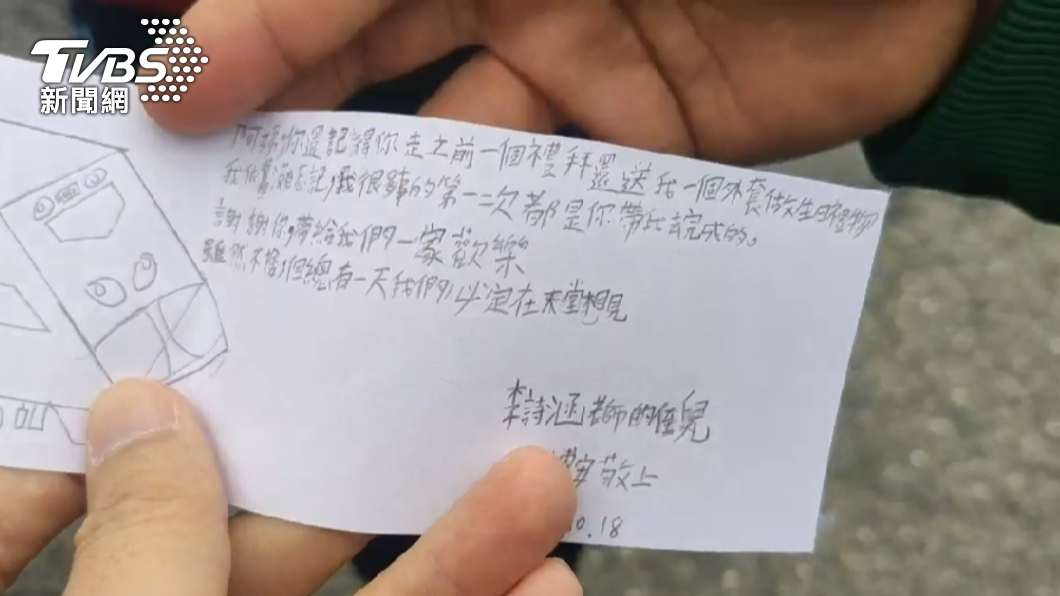 TVBS
新聞網
你還記得你走之前一個禮拜還送我一個外套做生日禮物
我依舊沒忘記,我很多的第一次都是你帶我去完成的。
謝謝你,帶給我們一家歡樂
雖然不捨,但總有一天我們必定在天堂相見
李詩涵老師的姪兒
安敬上
10.18